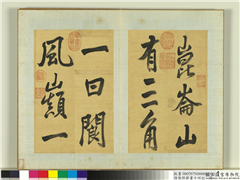 崑崙山
有三角
一曰閬
風巔一